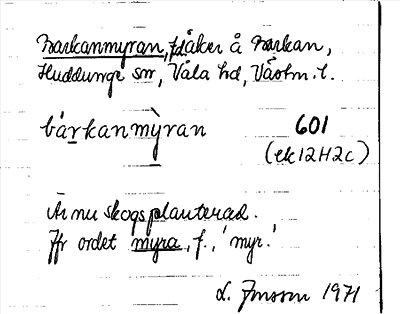 Barkanmyran, fd åker å Barkan,
Huddunge sn, Våla hd, Västm. l.
bárkanmỳran 601
(ek 12H2c)
Är nu skogsplanterad.
Jfr ordet myra, f., 'myr'.
L. Jonsson 1971